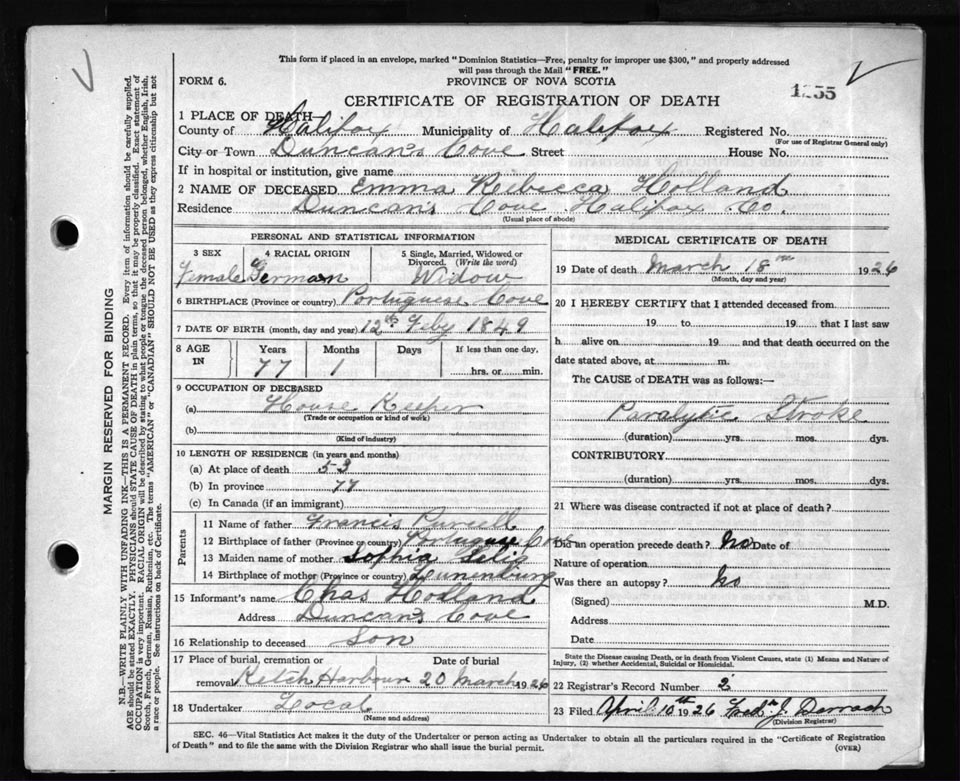 This form if placed in an envelope, marked "Dominion Statistics—Free, penalty for improper use $300," and properly addressed
will pass through the Mail "FREE."
FORM 6.
PROVINCE OF NOVA SCOTIA
CERTIFICATE OF REGISTRATION OF DEATH
1255
1 PLACE OF DEATH—
County of Halifax Municipality of Halifax Registered No.
(For use of Registrar General only)
City or Town Duncan's Cove Street House No.
If in hospital or institution, give name
2 NAME OF DECEASED Emma Rebecca Holland
Residence Duncan's Cove Halifax Co.
(Usual place of abode)
PERSONAL AND STATISTICAL INFORMATION
3 SEX 4 RACIAL ORIGIN 5 Single, Married, Widowed or
Divorced. (Write the word)
Female German Widow
6 BIRTHPLACE (Province or country) Portuguese Cove
7 DATE OF BIRTH (month, day and year) 12th Feby 1849
8 AGE IN Years Months Days If less than one day,
77 1 hrs. or min.
9 OCCUPATION OF DECEASED
(a) House Keeper
(Trade or occupation or kind of work)
(b)
(Kind of industry)
10 LENGTH OF RESIDENCE (in years and months)
(a) At place of death 53
(b) In province 77
(c) In Canada (if an immigrant)
Parents
11 Name of father Francis Purcell
12 Birthplace of father (Province or country) Portuguese Cove
13 Maiden name of mother Sophia Selig
14 Birthplace of mother (Province or country) Lunenburg
15 Informant's name Chas Holland
Address Duncan's Cove
16 Relationship to deceased Son
17 Place of burial, cremation or Date of burial
removal Ketch Harbour 20 March 1926
18 Undertaker Local
(Name and address)
MEDICAL CERTIFICATE OF DEATH
19 Date of death March 18 1926
(Month, day and year)
20 I HEREBY CERTIFY that I attended deceased from.
19 to 19 that I last saw
h alive on 19 and that death occurred on the
date stated above, at m.
The CAUSE of DEATH was as follows:—
Paralytic Stroke
(duration) yrs. mos. dys.
CONTRIBUTORY
(duration) yrs. mos. dys.
21 Where was disease contracted if not at place of death?
Did an operation precede death? no Date of
Nature of operation
Was there an autopsy? no
(Signed) M.D.
Address
Date
State the Disease causing Death, or in death from Violent Causes, state (1) Means and Nature of
Injury, (2) whether Accidental, Suicidal or Homicidal.
22 Registrar's Record Number 2
23 Filed April 10th 1926 Fredk J. Darrach
(Division Registrar)
SEC. 46—Vital Statistics Act makes it the duty of the Undertaker or person acting as Undertaker to obtain all the particulars required in the "Certificate of Registration
of Death" and to file the same with the Division Registrar who shall issue the burial permit.
(OVER)
MARGIN RESERVED FOR BINDING
N.B.—WRITE PLAINLY WITH UNFADING INK—THIS IS A PERMANENT RECORD. Every item of information should be carefully supplied.
AGE should be stated EXACTLY. PHYSICIANS should STATE CAUSE OF DEATH in plain terms, so that it may be properly classified. Exact statement of
OCCUPATION is very important. RACIAL ORIGIN will be described by stating to what people or tongue the deceased person belonged, whether English, Irish,
Scotch, French, German, Russian, Ruthenian, etc. The terms "AMERICAN" or "CANADIAN" SHOULD NOT BE USED as they express citizenship but not
a race or people. See instructions on back of Certificate.